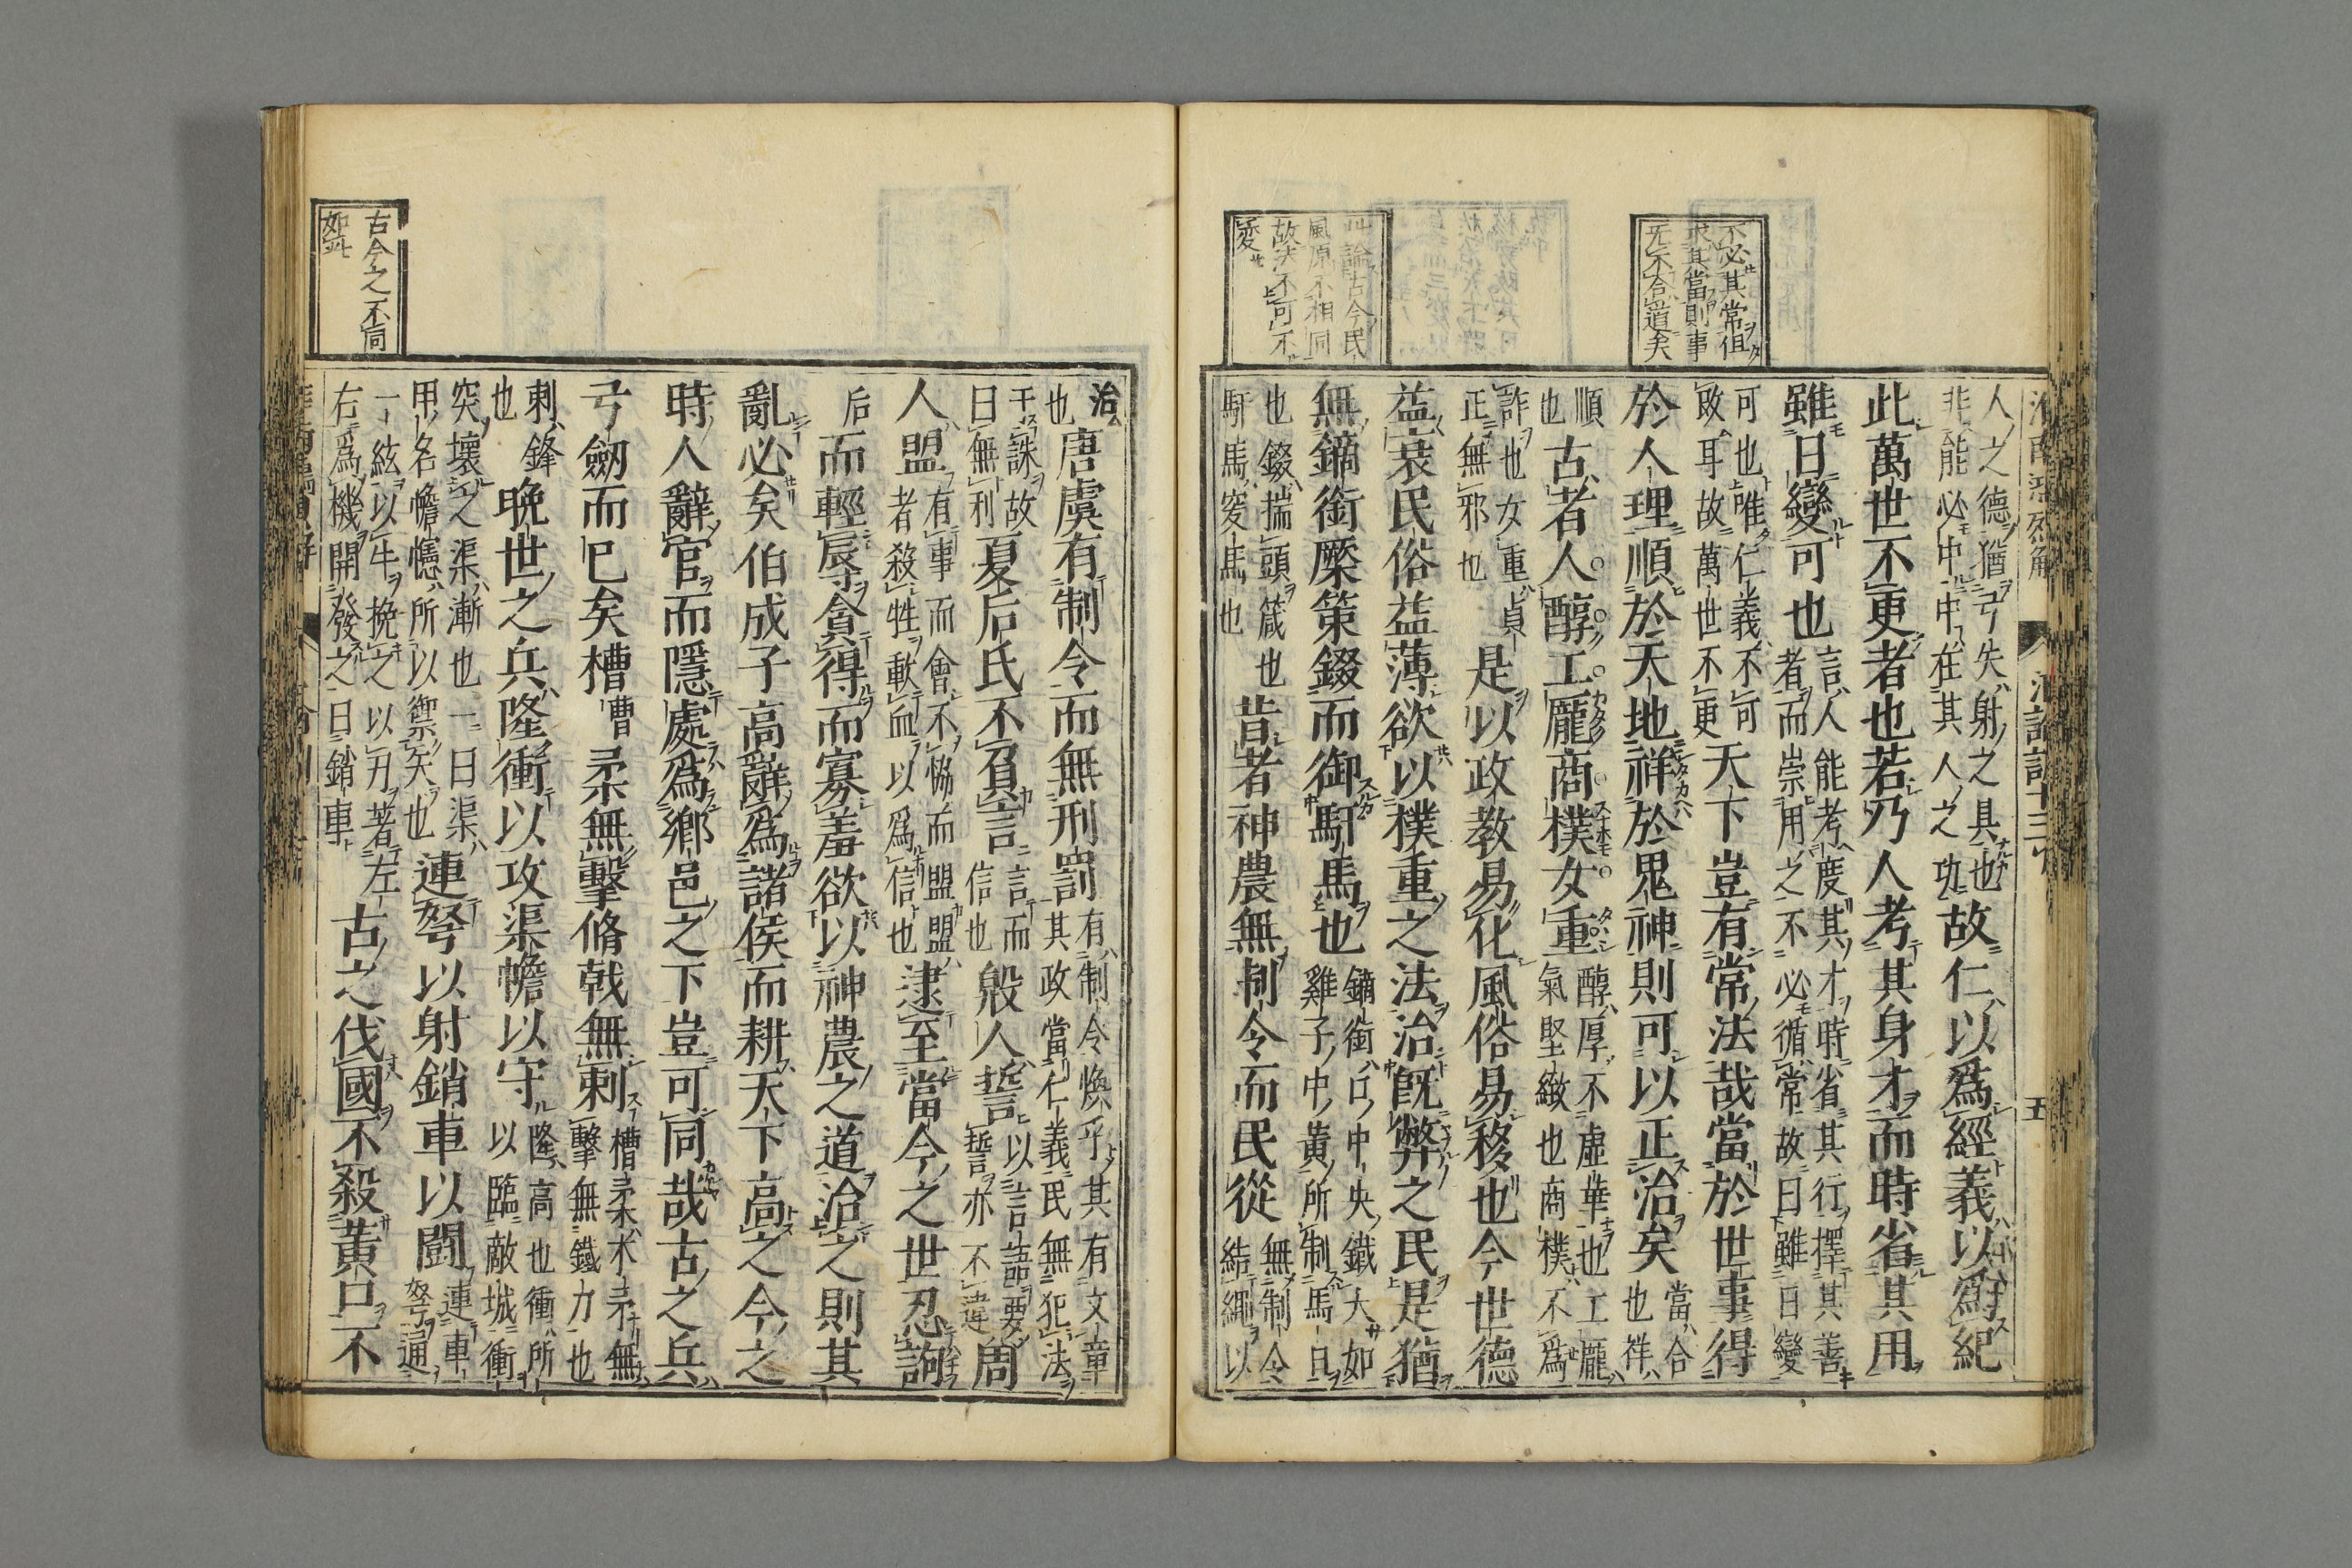 不必其常但
求其當則事
无不合道矣
此論古今民
風原不相同
故法不可不
変
人之德猶弓矢射之具也
非能必中中在其人之功
故仁以爲經義以爲紀
此萬世不更者也若乃人考其身才而時省其用
雖日變可也
言人能考度其才時省其行擇其善
者而崇用之不必循常故曰雖日變
可也唯仁義不可
改耳故萬世不更
天下豈有常法哉當於世事得
於人理順於天地祥於鬼神則可以正治矣
當合
也祥
順
也
古者人醇工龐商樸女重
醇厚不虛華也工龐
氣堅緻也商樸不爲
詐也女重貞
正無邪也
是以政教易化風俗易移也今世德
益衰民俗益薄欲以樸重之法治既弊之民是猶
無鏑銜橜策錣而御馯馬也
鏑銜口中央鐵大如
雞子中黄所制馬口
也錣揣頭箴也
馯馬突馬也
昔者神農無制令而民從
無制令
結繩以
治
也
唐虞有制令而無刑罰
有制令煥乎其有文章
其政當仁義民無犯法
干誅故
曰無利
夏后氏不負言
言而
信也
殷人誓
以言語要
誓亦不違
周
人盟
有事而會不恊而盟盟
者殺牲歃血以爲信也
逮至當今之世忍訽
后
而輕辱貪得而寡羞欲以神農之道治之則其
亂必矣伯成子高辭爲諸侯而耕天下高之今之
時人辭官而隱處爲鄉邑之下豈可同哉古之兵
弓劒而已矣槽
曹
柔無擊脩戟無刺
槽柔木矛無
擊無鐵力也
刺鋒
也
晩世之兵隆衝以攻渠幨以守
隆高也衝所
以臨敵城衝
突壞之渠漸也一曰渠
甲名幨幰所以禦矢也
連弩以射銷車以鬭
連車
弩通
一絃以牛挽之以刃著左
右爲機開發之曰銷車
古之伐國不殺黄口不
古今之不同
如此